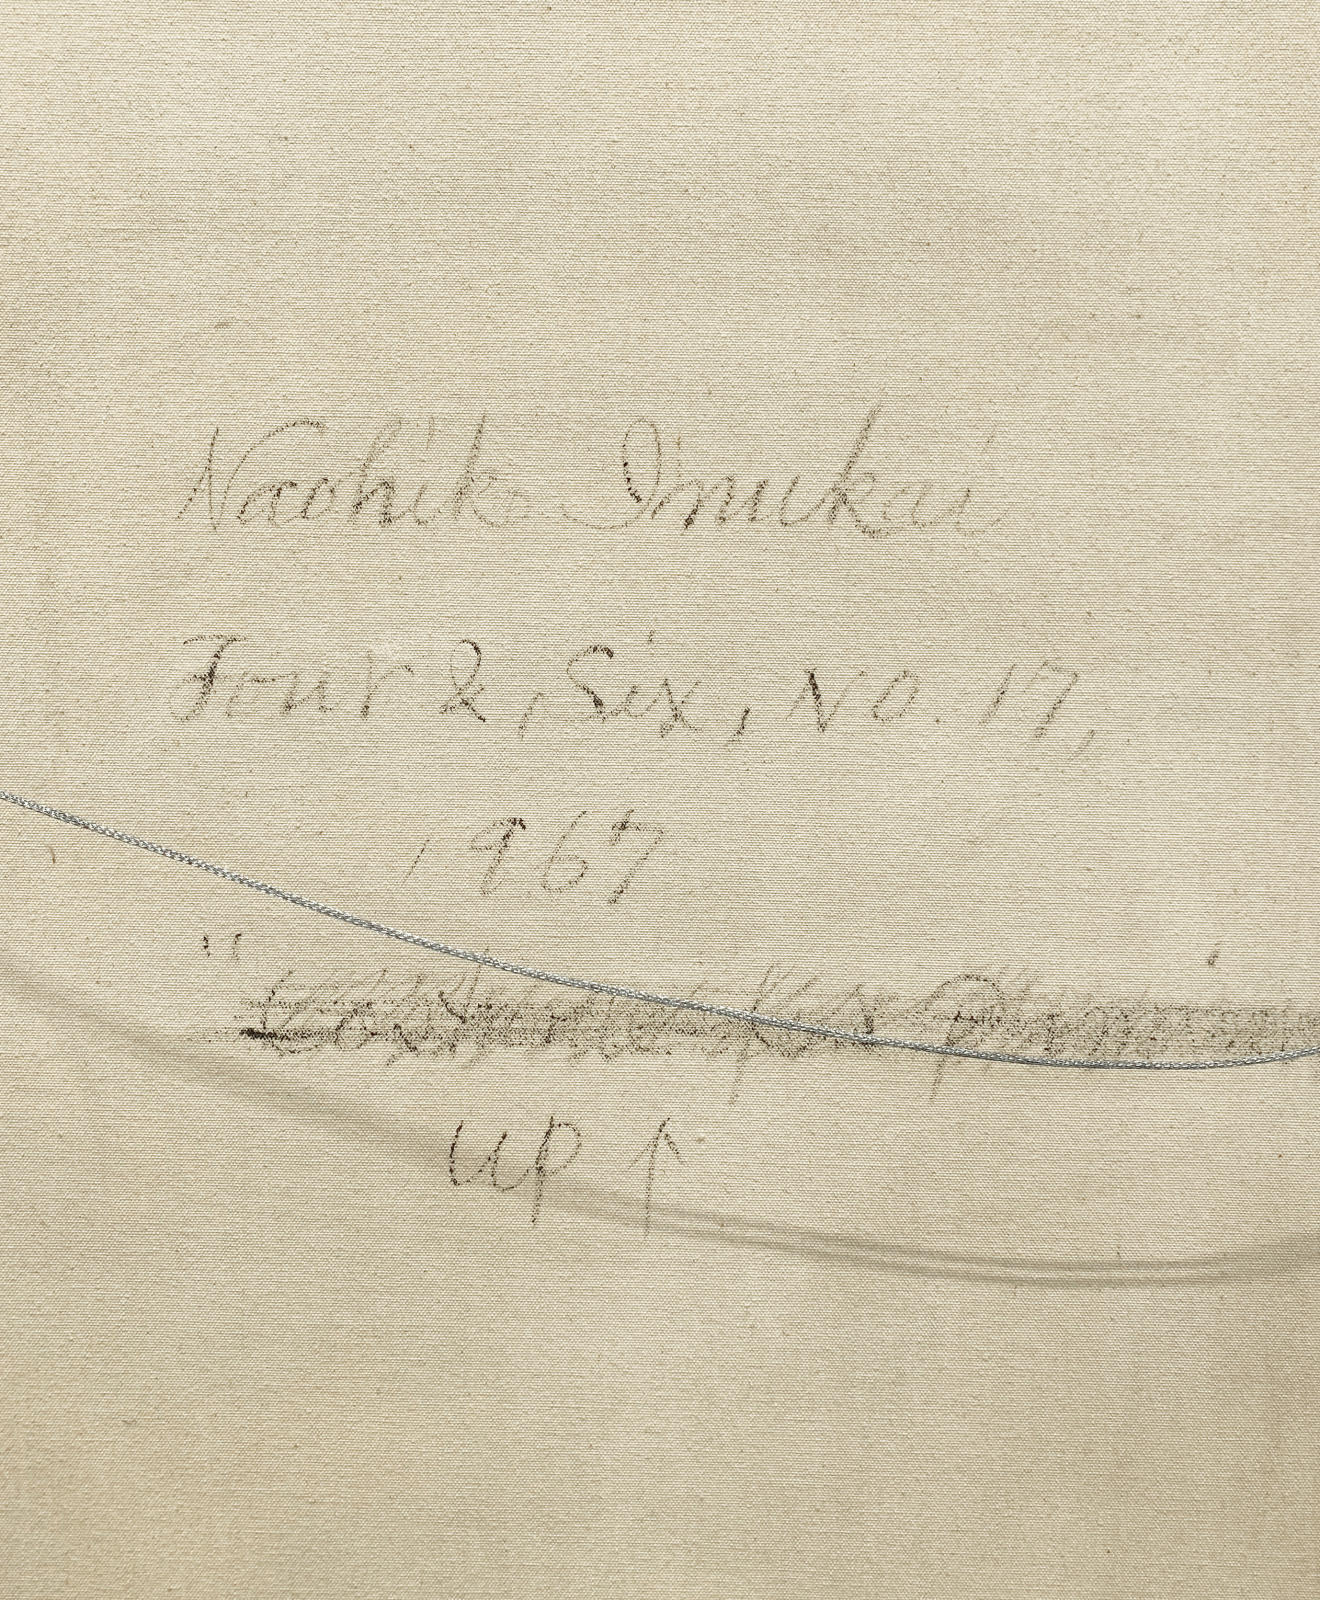 Naohiko Inukai
Four &, Six, No. 17,
1967
up ↑